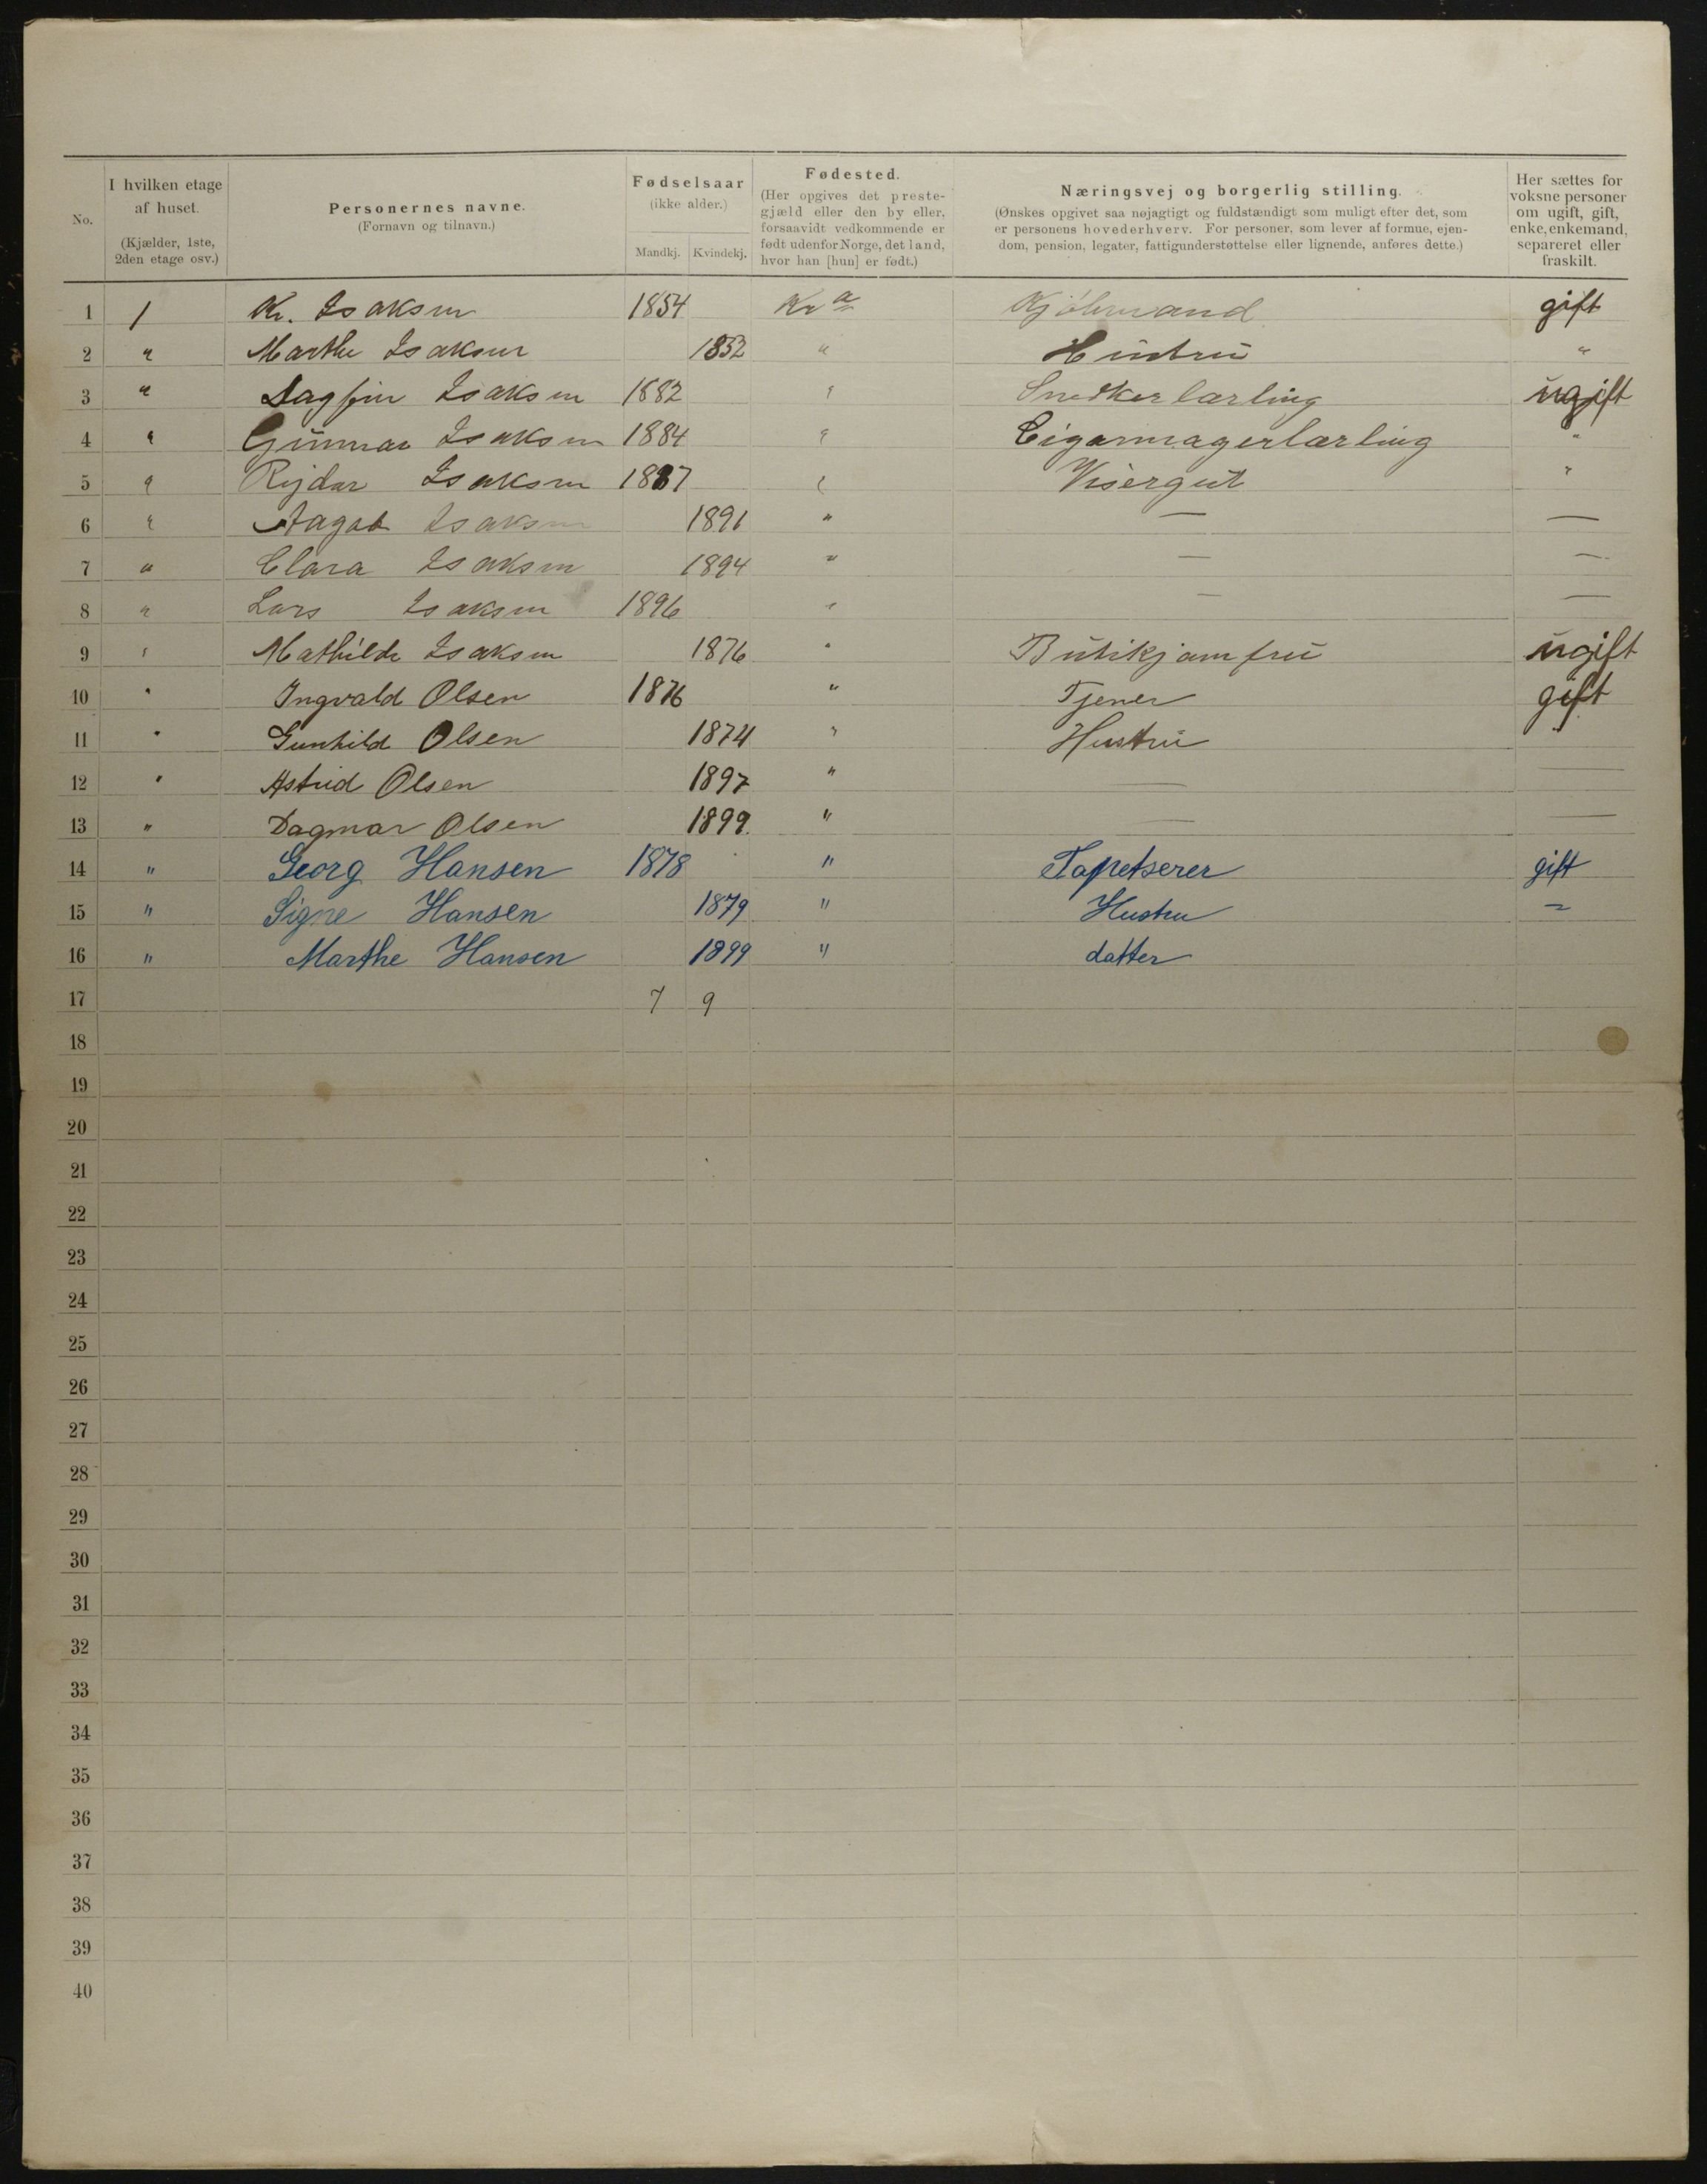 No. | I hvilken etage af huset. (Kjælder, 1ste, 2den etage osv.) | Personernes navne. (Fornavn og tilnavn.) | Fødselsaar (ikke alder.) Mandkj. Kvindekj. | Fødested. (Her opgives det prestegjæld eller den by eller, forsaavidt vedkommende er født udenfor Norge, det land, hvor han [hun] er født.) | Næringsvej og borgerlig stilling. (Ønskes opgivet saa nøjagtigt og fuldstændigt som muligt efter det, som er personens hovederhverv. For personer, som lever af formue, ejendom, pension, legater, fattigunderstøttelse eller lignende, anføres dette.) | Her sættes for voksne personer om ugift, gift, enke, enkemand, separeret eller fraskilt.
1 1 Kr. Isaksen 1854 Kra Kjøbmand gift
2 " Marthe Isaksen 1852 " Hustru "
3 " Dagfin Isaksen 1882 " Snedkerlærling ugift
4 " Gunnar Isaksen 1884 " Cigarmagerlærling "
5 " Rejdar Isaksen 1887 " Visergut "
6 " Aagot Isaksen 1891 " — —
7 " Clara Isaksen 1894 " — —
8 " Lars Isaksen 1896 " — —
9 " Mathilde Isaksen 1876 " Butikjomfru ugift
10 " Ingvald Olsen 1876 " Tjener gift
11 " Gunhild Olsen 1874 " Hustru "
12 " Astrid Olsen 1897 " — —
13 " Dagmar Olsen 1899. " — —
14 " Georg Hansen 1878 " Tapetserer gift
15 " Signe Hansen 1879 " Hustru "
16 " Marthe Hansen 1899 " datter
17 7 9
18
19
20
21
22
23
24
25
26
27
28
29
30
31
32
33
34
35
36
37
38
39
40